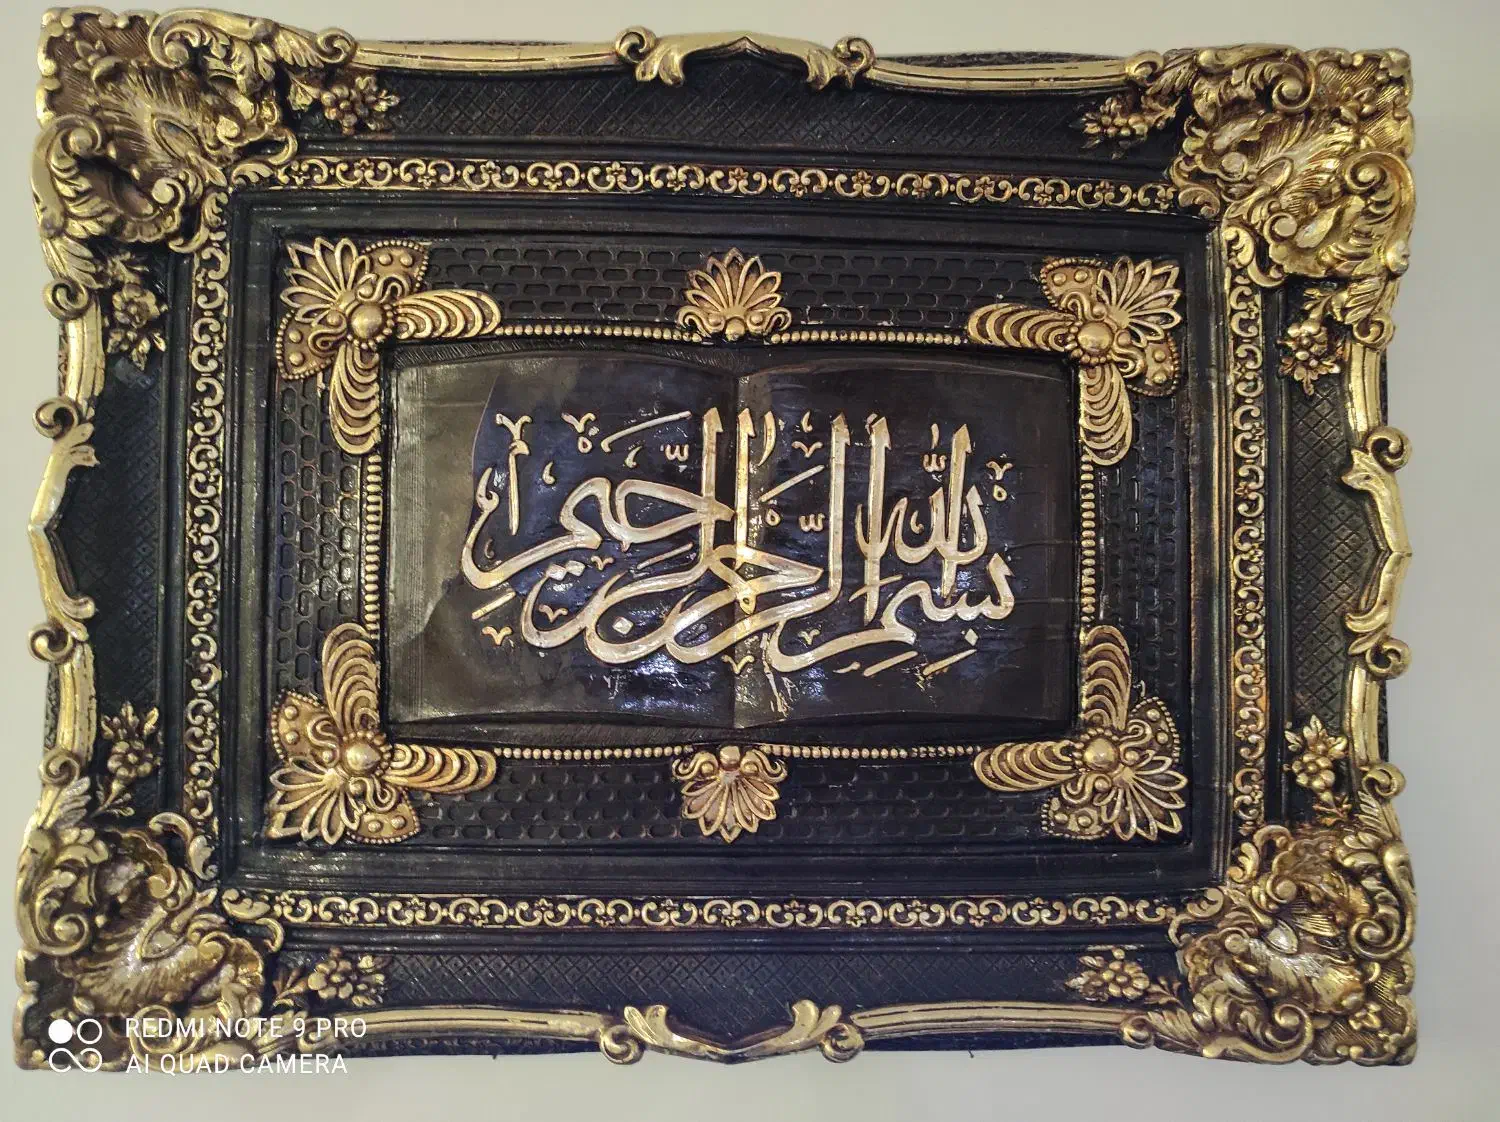 بِسْمِ اللهِ الرَّحْمٰنِ الرَّحِيمِ
REDMI NOTE 9 PRO
AI QUAD CAMERA